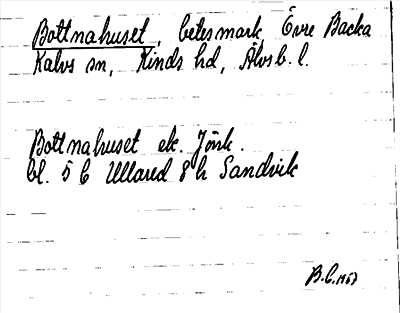 Bottnahuset, betesmark, Övre Backa
Kalvs sn, Kinds hd, Älvsb. l.
Bottnahuset ek.
bl. 5 C Ullared 8 h Sandvik